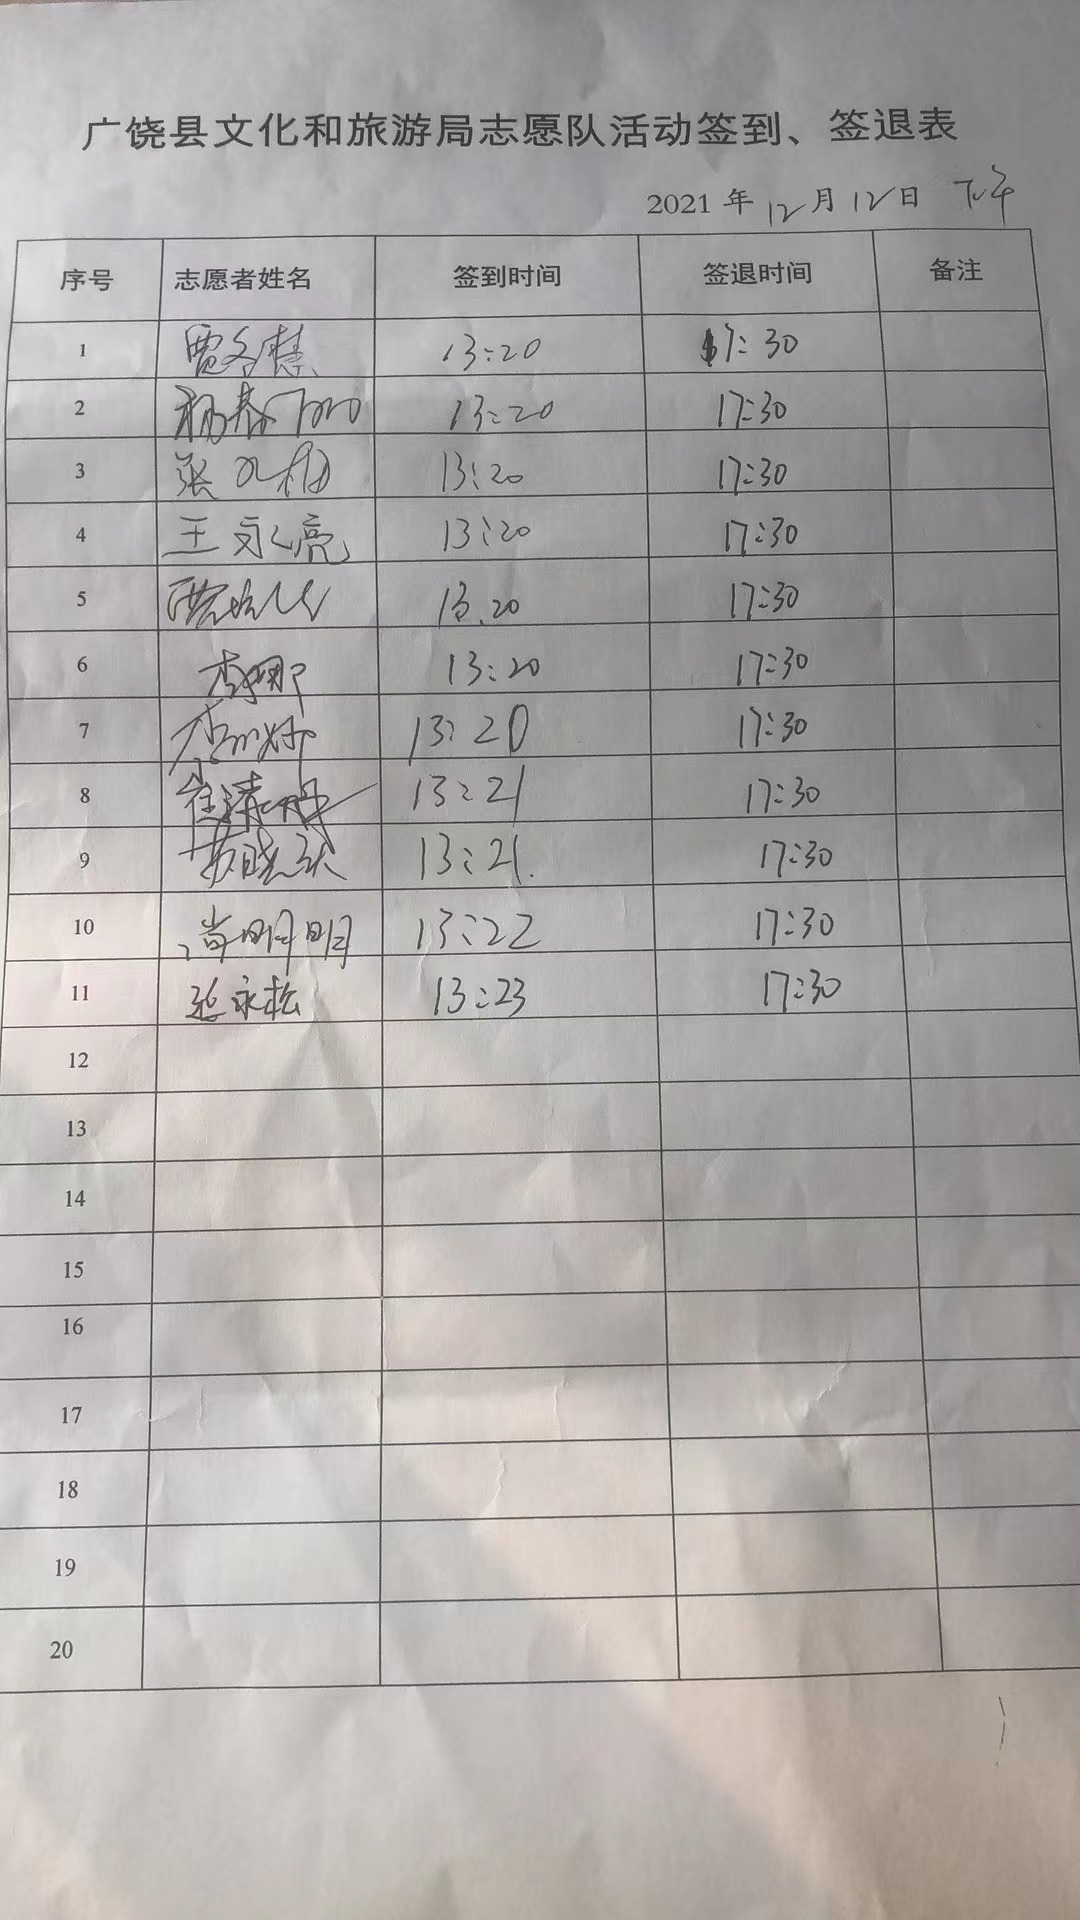 广饶县文化和旅游局志愿队活动签到、签退表
2021 年 12 月 12 日 下午
序号 志愿者姓名 签到时间 签退时间 备注
1 13:20 17:30
2 13:20 17:30
3 张 13:20 17:30
4 王永亮 13:20 17:30
5 13.20 17:30
6 李娜 13:20 17:30
7 13:20 17:30
8 崔清 13:21 17:30
9 苏晓 13:21. 17:30
10 尚明明 13:22 17:30
11 延永松 13:23 17:30
12
13
14
15
16
17
18
19
20